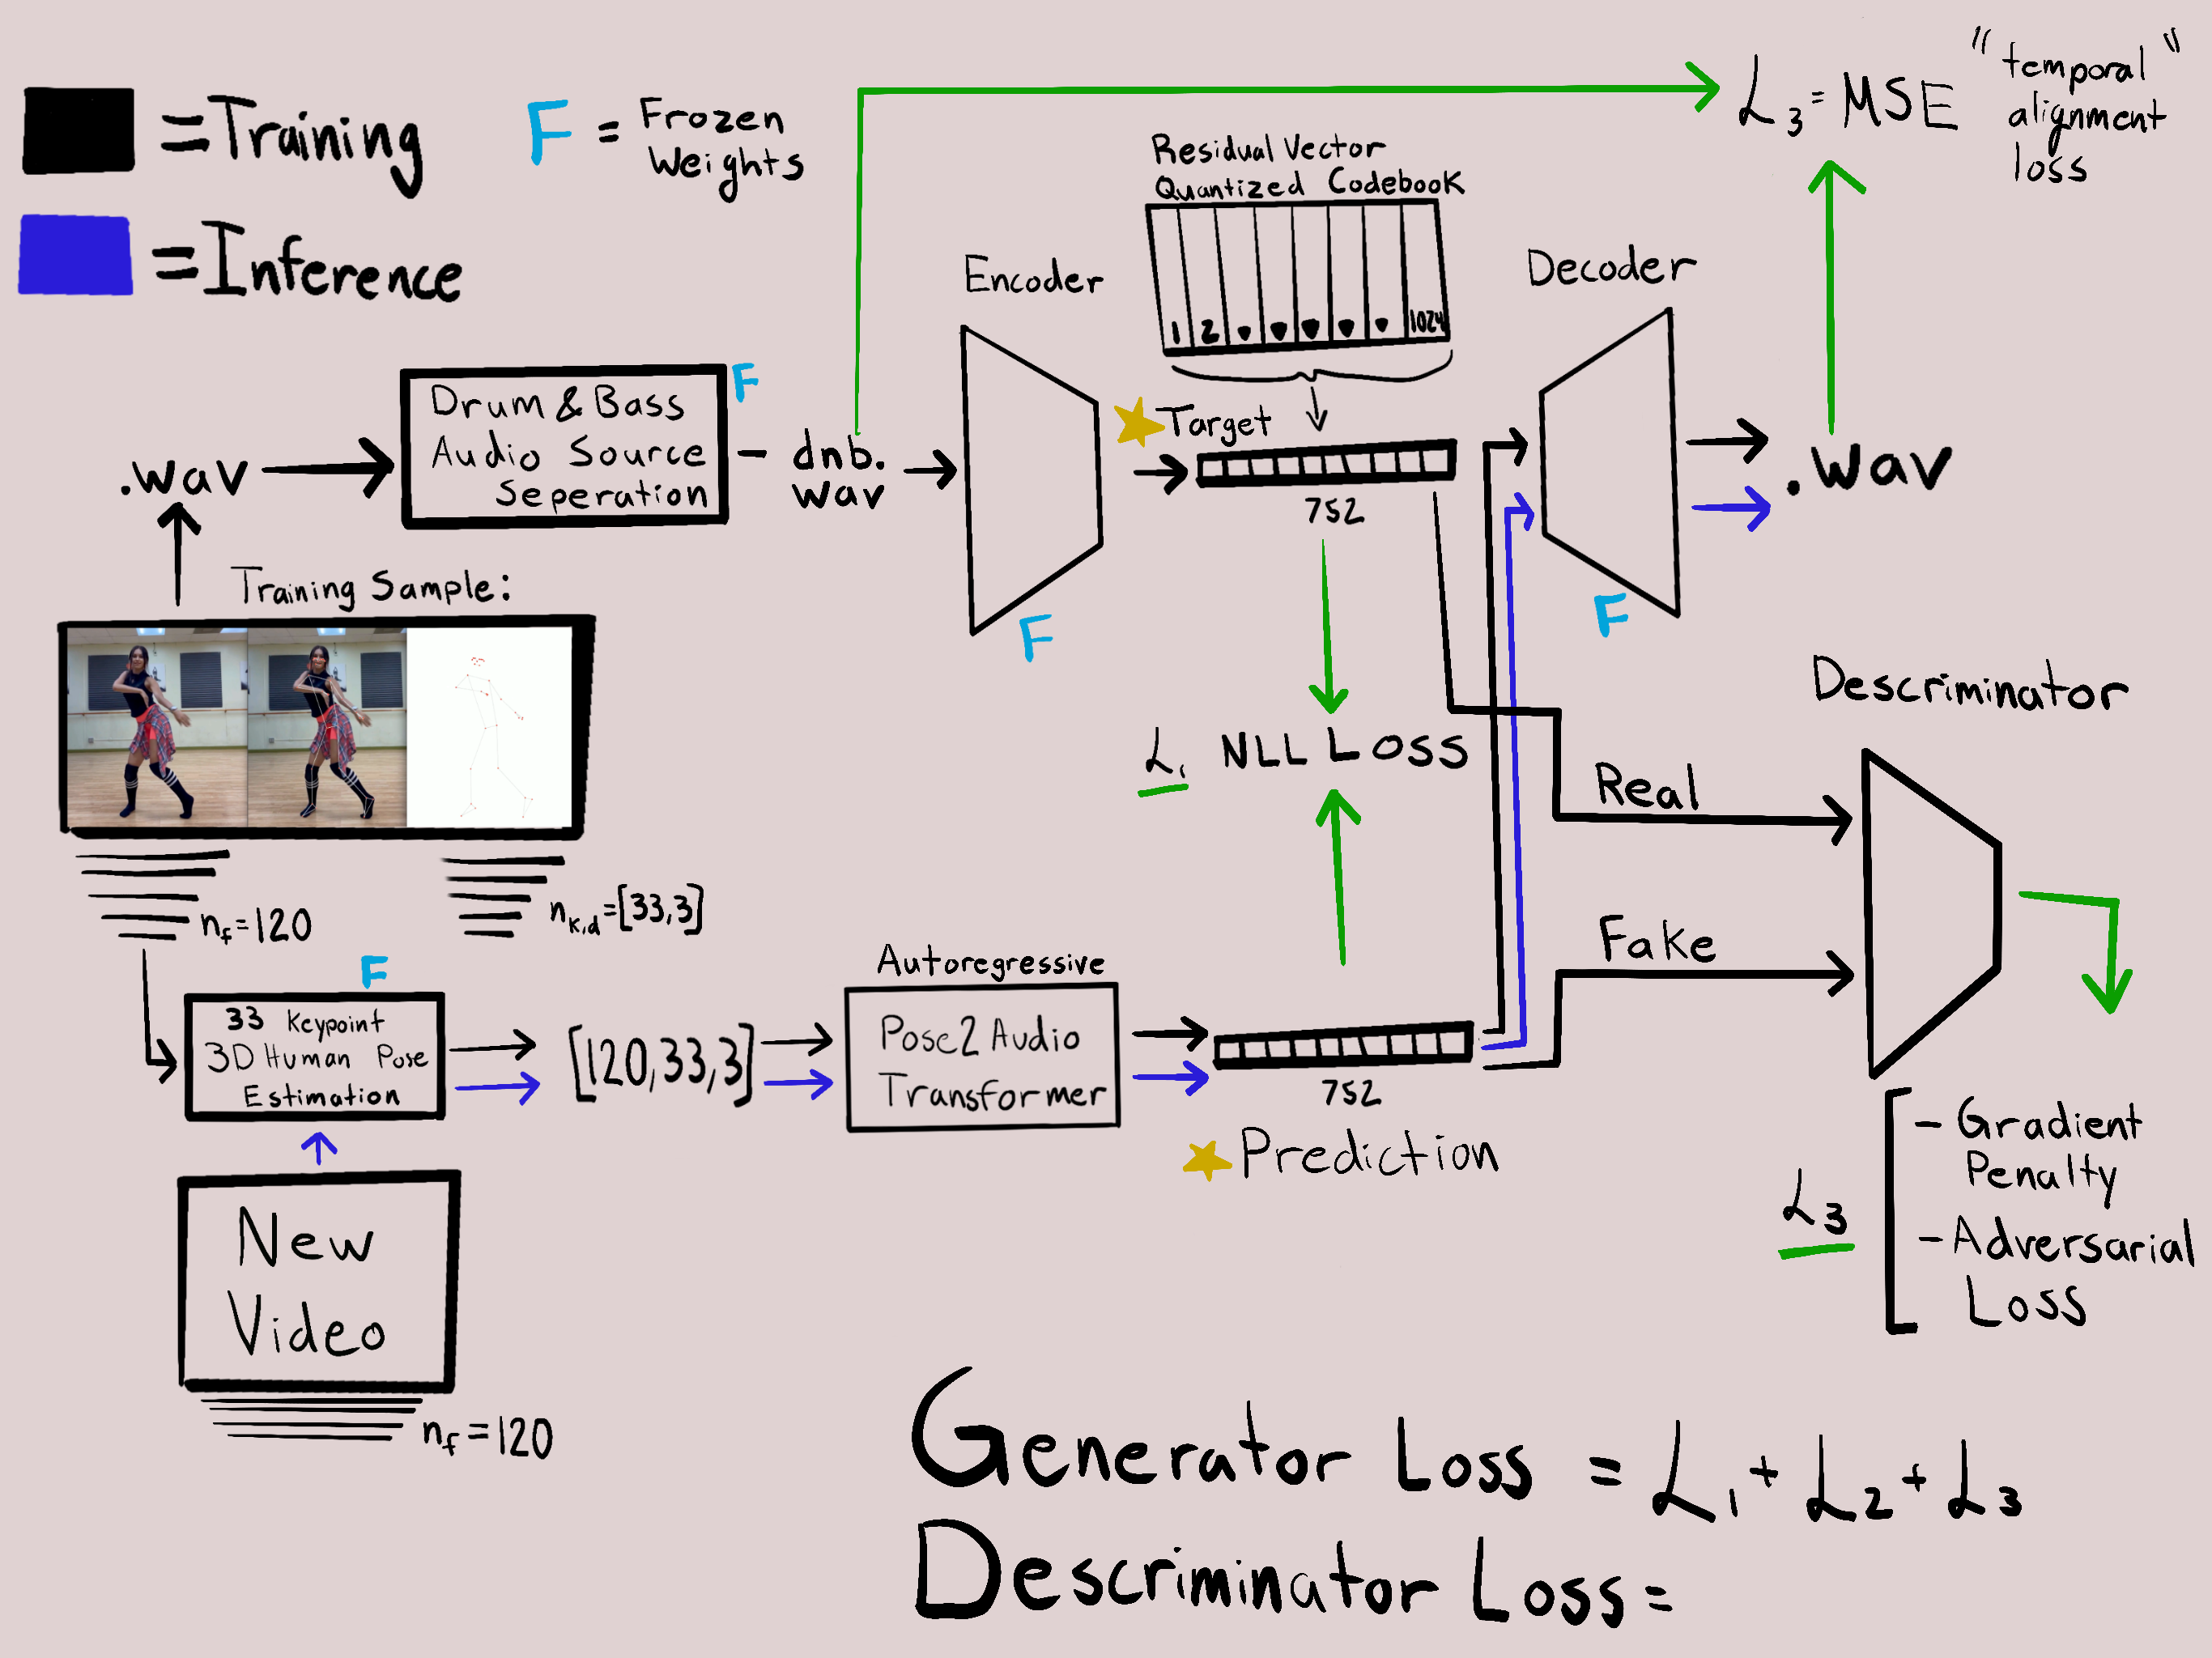 =Training
F = Frozen
Weights
=Inference
L3 = MSE "temporal"
alignment
loss
Residual Vector
Quantized Codebook
1 2 • • • • • 1024
Encoder
Decoder
Target
752
.wav
Drum & Bass
Audio Source
Seperation
F
dnb.
wav
F
F
.wav
Training Sample:
nf=120
nk,d=[33,3]
L1 NLL Loss
Descriminator
Real
Fake
F
33 Keypoint
3D Human Pose
Estimation
[120,33,3]
Autoregressive
Pose2Audio
Transformer
752
Prediction
New
Video
nf=120
L3
- Gradient
Penalty
- Adversarial
Loss
Generator Loss = L1 + L2 + L3
Descriminator Loss =